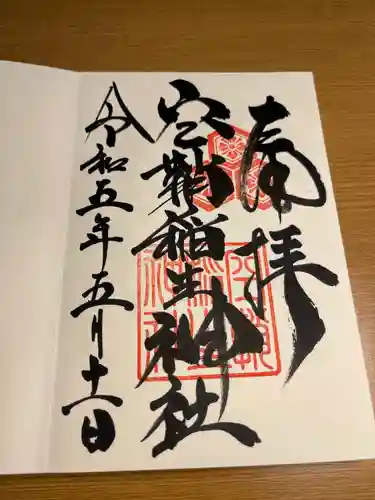 奉拝
空鞘稲生神社
令和五年五月十一日